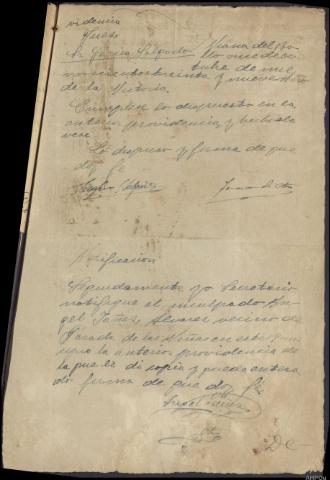 videncia
Juez
Sr García Salgado Viana del Bo
lo once de oc
tubre de mil
novecientos treinta y nueve Año
de la Victoria.
Cumplase lo dispuesto en la
anterior providencia y hecho de
vuel
Lo dispuso y firma de que
doy fe
Notificacion
Seguidamente yo Secretario
notifique al inculpado An
gel Yañez Alvarez vecino de
Parada de las Viñas en
la anterior providencia de
la que le di copia y queda entera
do firma de que doy fe